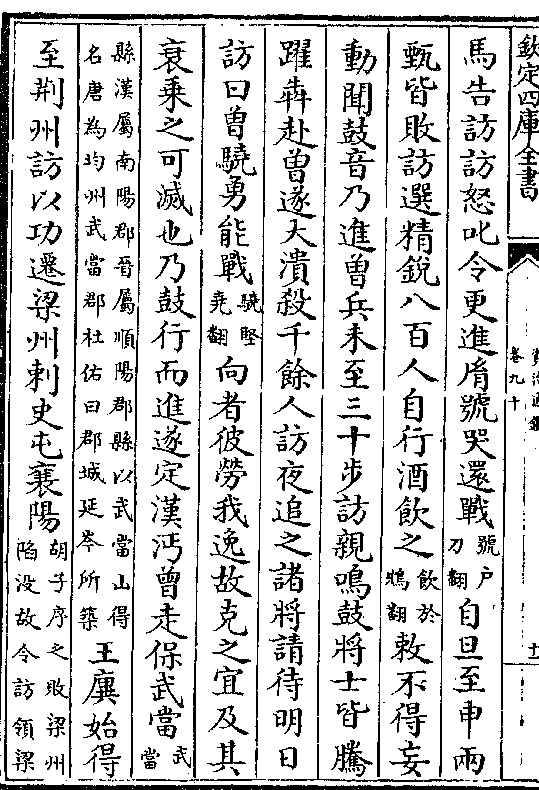 欽定四庫全書
資治通鑑
卷九十
馬告訪訪怒叱令更進脩號哭還戰號户刀翻自旦至申兩
甄皆敗訪選精銳八百人自行酒飲之飲於鴆翻敕不得妄
動聞鼓音乃進曾兵未至三十步訪親鳴鼓將士皆騰
躍犇赴曾遂大潰殺千餘人訪夜追之諸將請待明日
訪曰曾驍勇能戰驍堅堯翻向者彼勞我逸故克之宜及其
衰乘之可滅也乃鼓行而進遂定漢沔曾走保武當武當
縣漢屬南陽郡晉屬順陽郡縣以武當山得名唐為均州武當郡杜佑曰郡城延岑所築王廙始得
至荆州訪以功遷梁州刺史屯襄陽胡子序之敗梁州陷没故令訪領梁